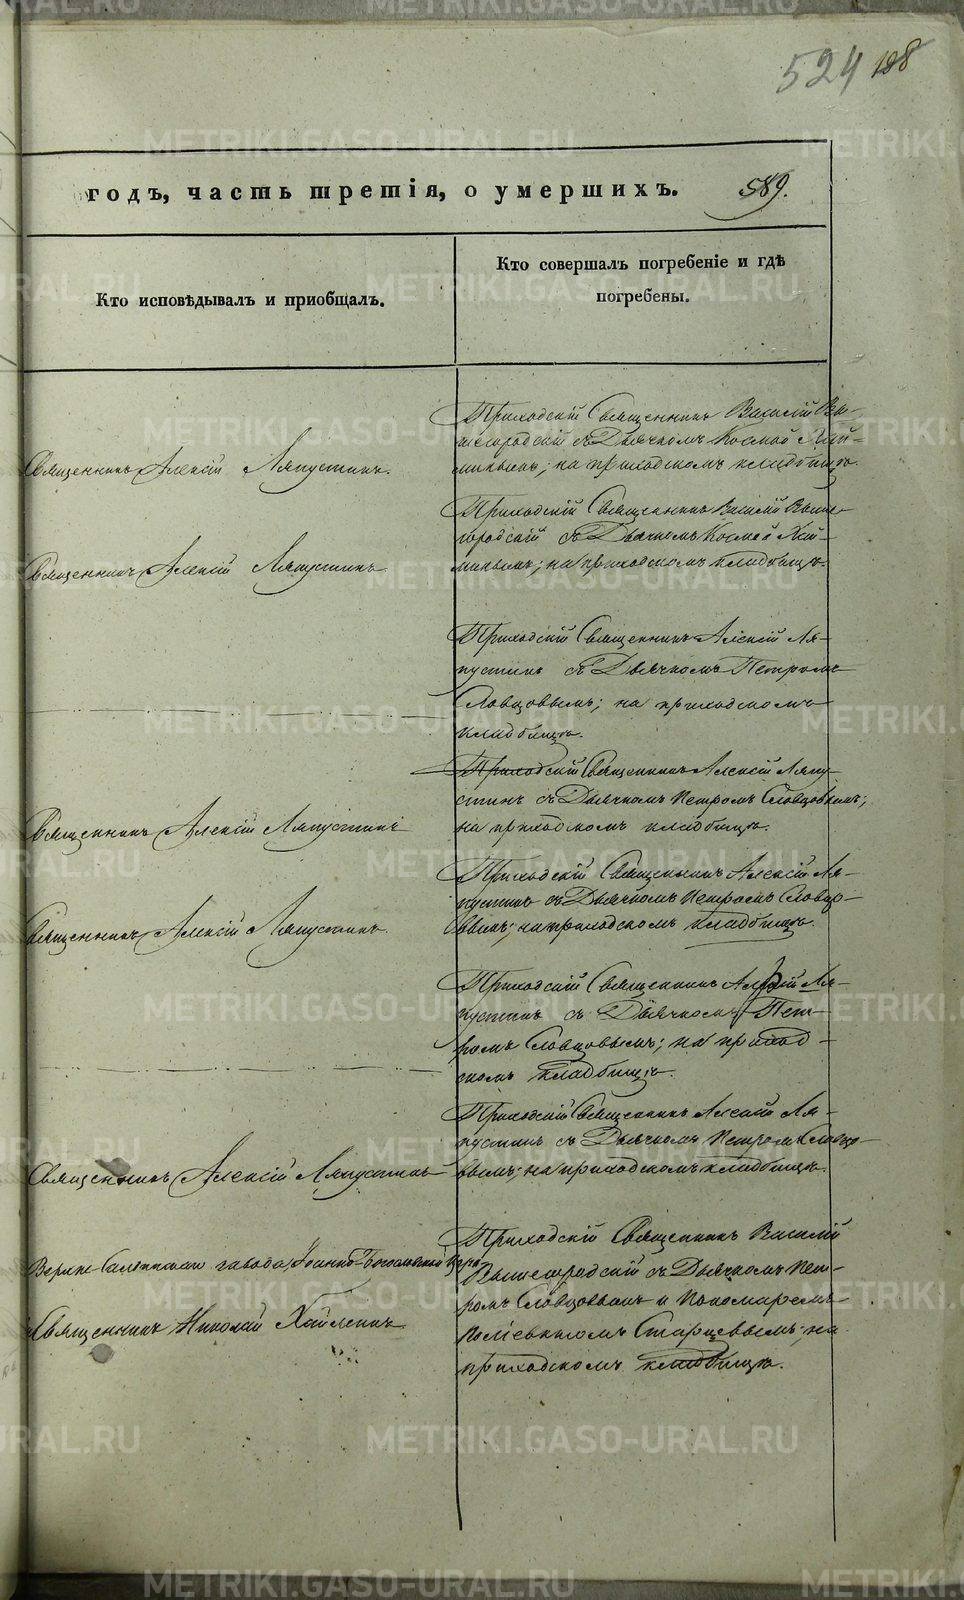 524 188
годъ, часть третія, о умершихъ. 589.
Кто исповѣдывалъ и пріобщалъ.
Кто совершалъ погребеніе и гдѣ
погребены.
Священникъ Алексій Ляпустинъ.
Приходскій Священникъ Василій Вы-
шегородскій съ Дьячкомъ Космой
на приходскомъ кладбищѣ.
Священникъ Алексій Ляпустинъ
Приходскій Священникъ Василій Выше-
городскій съ Дьячкомъ Космой
на приходскомъ кладбищѣ.
Приходскій Священникъ Алексій Ля-
пустинъ съ Дьячкомъ Петромъ
Словцовымъ; на приходскомъ
кладбищѣ.
Священникъ Алексій Ляпустинъ
Приходскій Священникъ Алексій Ляпу-
стинъ съ Дьячкомъ Петромъ Словцовымъ;
на приходскомъ кладбищѣ.
Священникъ Алексій Ляпустинъ.
Приходскій Священникъ Алексій Ля-
пустинъ съ Дьячкомъ Петромъ Словцо-
вымъ; на приходскомъ кладбищѣ.
Приходскій Священникъ Алексій Ля-
пустинъ съ Дьячкомъ Пет-
ромъ Словцовымъ; на приход-
скомъ кладбищѣ.
Священникъ Алексій Ляпустинъ
Приходскій Священникъ Алексій Ля-
пустинъ съ Дьячкомъ Петромъ Словцо-
вымъ; на приходскомъ кладбищѣ.
завода Іоанно-Богословской
Священникъ Николай
Приходскій Священникъ Василій
Вышегородскій съ Дьячкомъ Пет-
ромъ Словцовымъ и Пономаремъ
Старцевымъ; на
приходскомъ кладбищѣ.
METRIKI.GASO-URAL.RU